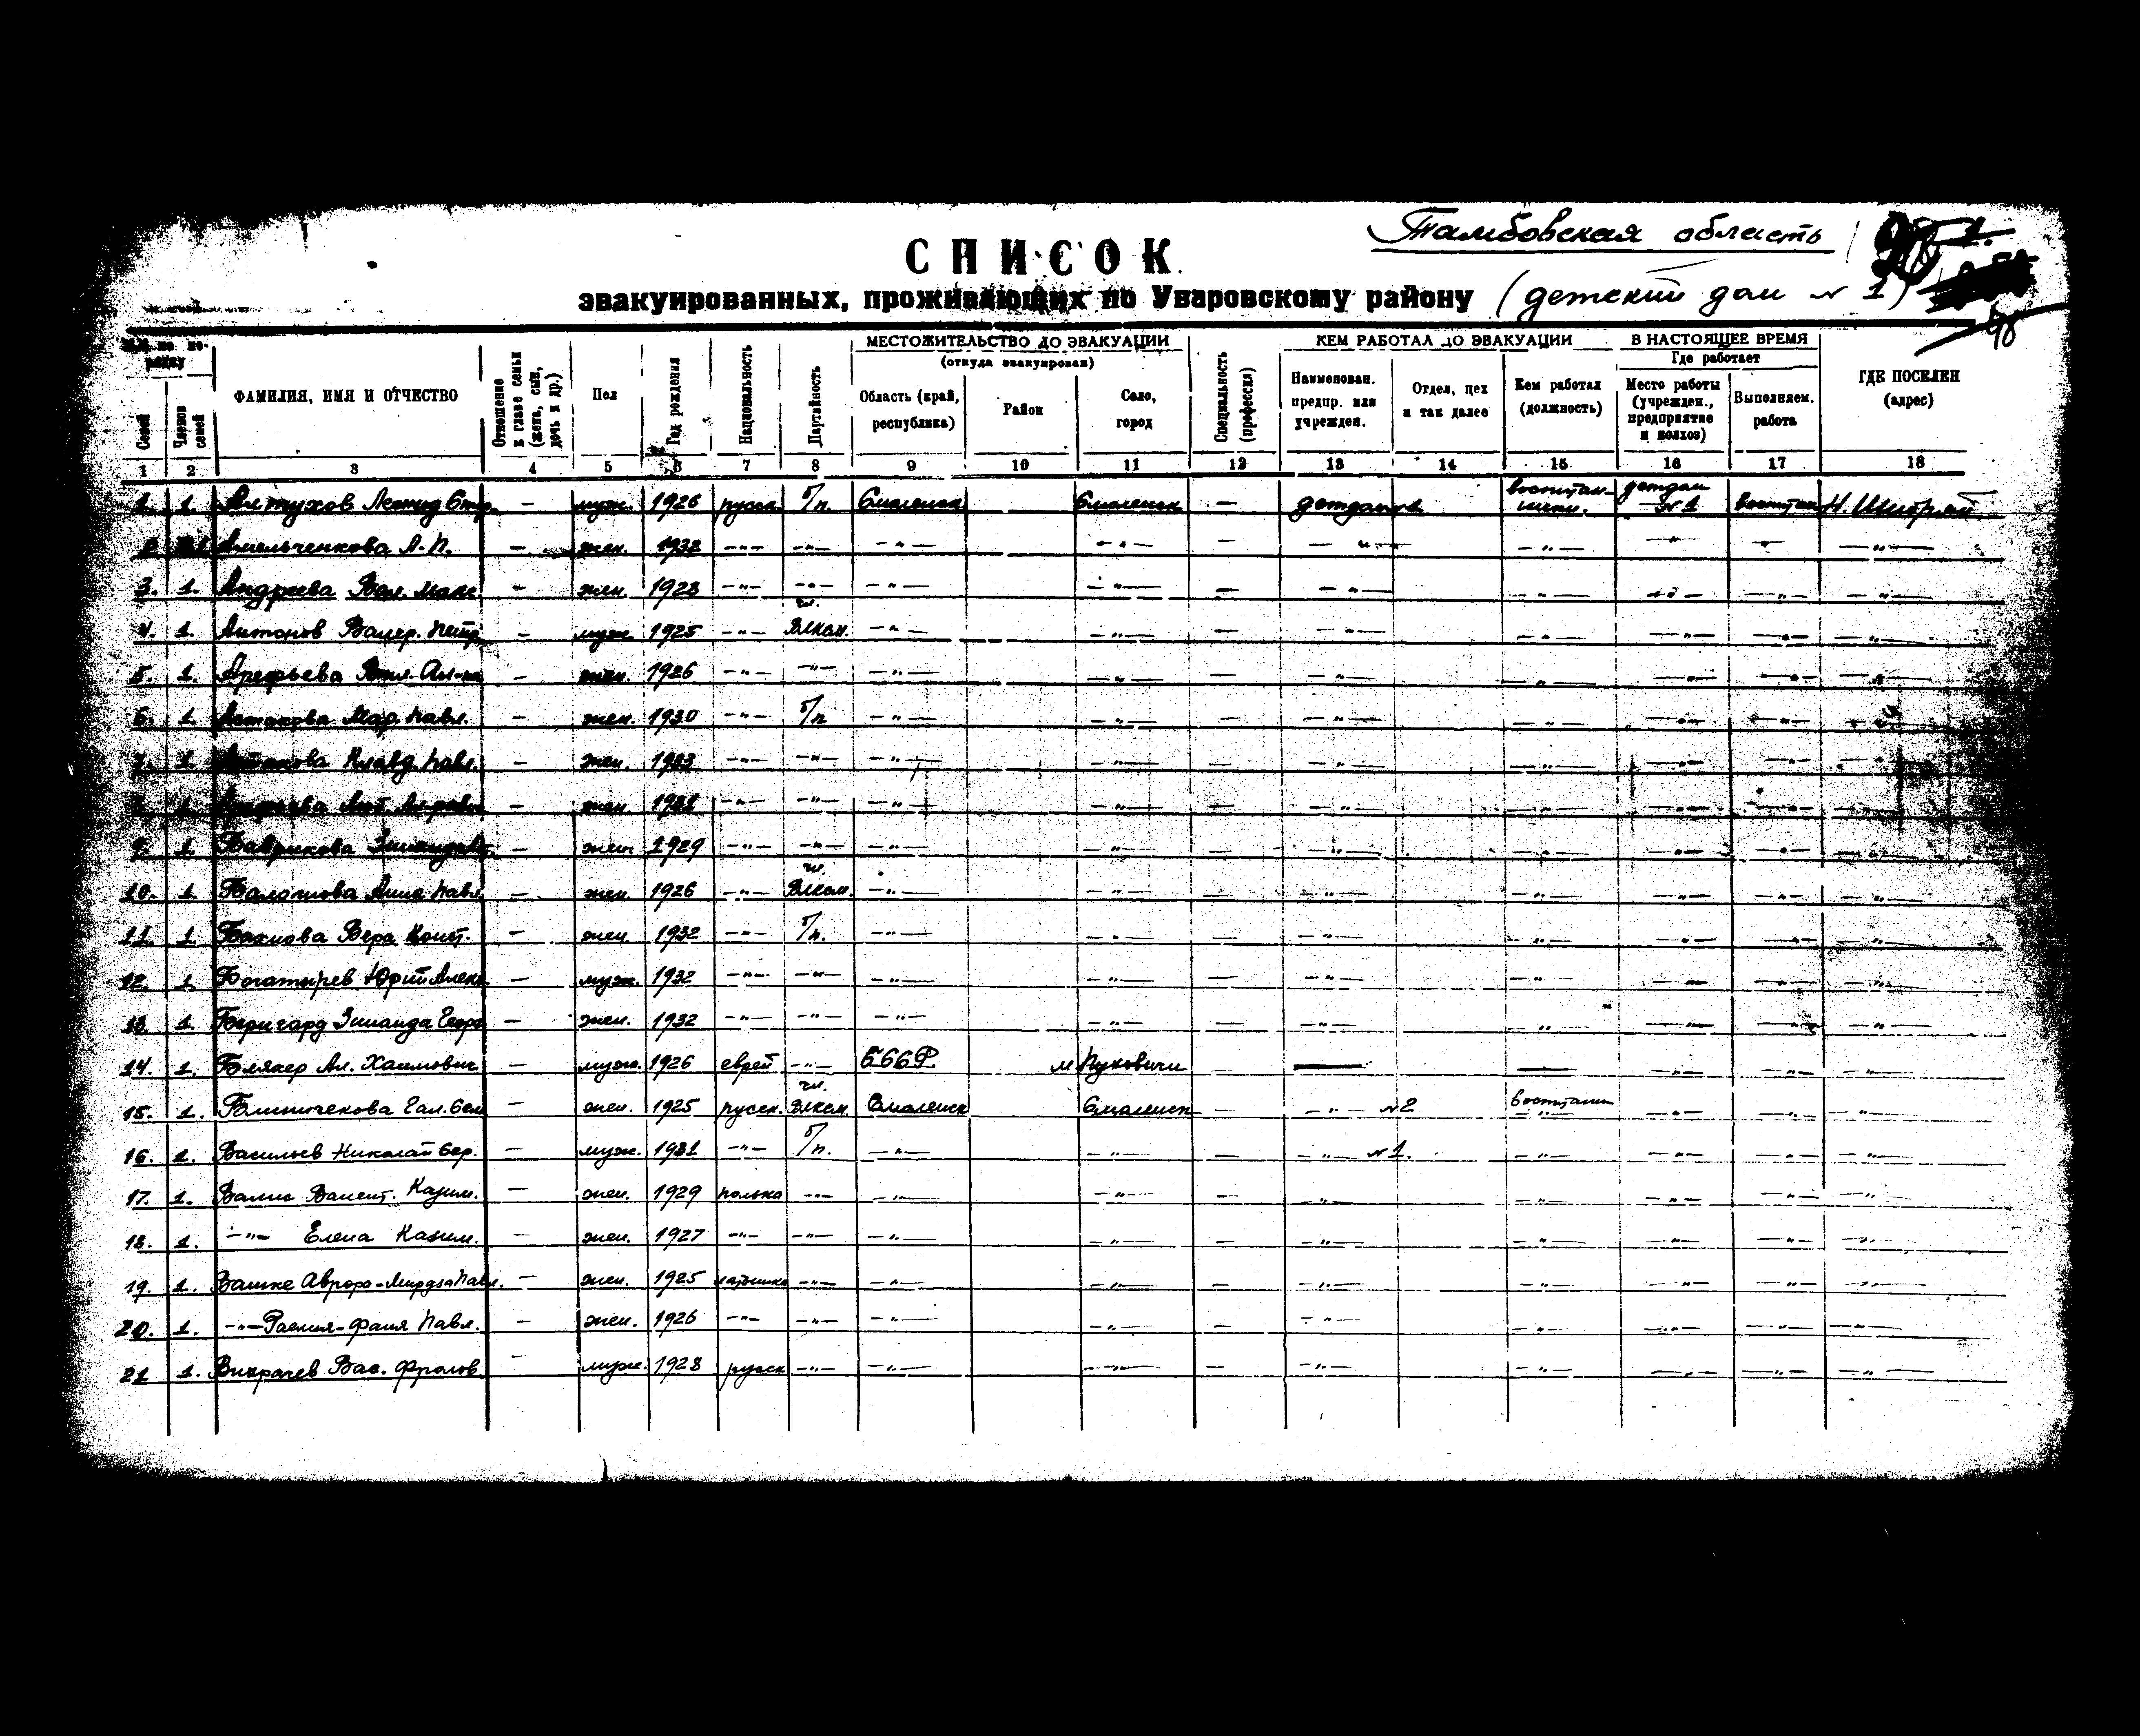 Тамбовская область
СПИСОК
эвакуированных, проживающих по Уваровскому району (детский дом № 1)
98
№№ по порядку
Семей
Членов семей
ФАМИЛИЯ, ИМЯ И ОТЧЕСТВО
Отношение к главе семьи (жена, сын, дочь и др.)
Пол
Год рождения
Национальность
Партийность
МЕСТОЖИТЕЛЬСТВО ДО ЭВАКУАЦИИ
(откуда эвакуирован)
Область (край, республика)
Район
Село, город
Специальность (профессия)
КЕМ РАБОТАЛ ДО ЭВАКУАЦИИ
Наименован. предпр. или учрежден.
Отдел, цех и так далее
Кем работал (должность)
В НАСТОЯЩЕЕ ВРЕМЯ
Где работает
Место работы (учрежден., предприятие и колхоз)
Выполняем. работа
ГДЕ ПОСЕЛЕН (адрес)
1 2 3 4 5 6 7 8 9 10 11 12 13 14 15 16 17 18
1. 1. Алтухов Леонид — муж. 1926 русск. б/п. Смоленск Смоленск — детдом №1 воспитан- детдом №1 воспитан Н. Шибряй
1 Амельченкова А. П. — жен. 1932 —"— —"— —"— —"— — —"— —"— —"— —"— —"—
3. 1. Андреева Вал. Макс. — жен. 1928 —"— —"— —"— —"— — —"— —"— —"— —"— —"—
4. 1. Антонов Валер. Петр. — муж. 1925 —"— чл. ВЛКСМ. —"— —"— — —"— —"— —"— —"— —"—
5. 1. Арефьева — жен. 1926 —"— —"— —"— —"— — —"— —"— —"— —"—
6. 1. Астахова Мар. Павл. — жен. 1930 —"— б/п —"— —"— — —"— —"— —"— —"— —"—
7. 1 Клавд. Павл. — жен. 1933 —"— —"— —"— —"— — —"— —"— —"— —"— —"—
1 — жен. 1931 —"— —"— —"— —"— — —"— —"— —"— —"— —"—
9. 1. Баврикова — жен. 1929 —"— —"— —"— —"— — —"— —"— —"— —"— —"—
10. 1 Анна Павл. — жен. 1926 —"— чл. ВЛКСМ. —"— —"— — —"— —"— —"— —"— —"—
11. 1. Вера Конст. — жен 1932 —"— б/п. —"— —"— — —"— —"— —"— —"— —"—
12. 1. Богатырев Юрий Алекс — муж. 1932 —"— —"— —"— —"— — —"— —"— —"— —"— —"—
13. 1. Зинаида Георг — жен. 1932 —"— —"— —"— —"— — —"— —"— —"— —"— —"—
14. 1. Бляхер Ал. Хаимович — муж. 1926 еврей —"— БССР. м. Пуховичи — — — —"— —"— —"—
15. 1. Блинченкова Гал. Сем — жен. 1925 русск. чл. ВЛКСМ. Смоленск Смоленск — —"— №2 воспитан —"— —"— —"— —"—
16. 1. Васильев Николай Сер. — муж. 1931 —"— б/п. —"— —"— — —"— №1. —"— —"— —"— —"—
17. 1. Валис Валент. Казим. — жен. 1929 полька —"— —"— —"— — —"— —"— —"— —"— —"—
18. 1. —"— Елена Казим. — жен. 1927 —"— —"— —"— —"— — —"— —"— —"— —"— —"—
19. 1. Вашке Аврора-Мирдза Павл. — жен. 1925 латышка —"— —"— —"— — —"— —"— —"— —"— —"—
20. 1. —"— Павл. — жен. 1926 —"— —"— —"— —"— — —"— —"— —"— —"— —"—
21 1. Викрачев Вас. Фролов. — муж. 1928 русск —"— —"— —"— — —"— —"— —"— —"— —"—